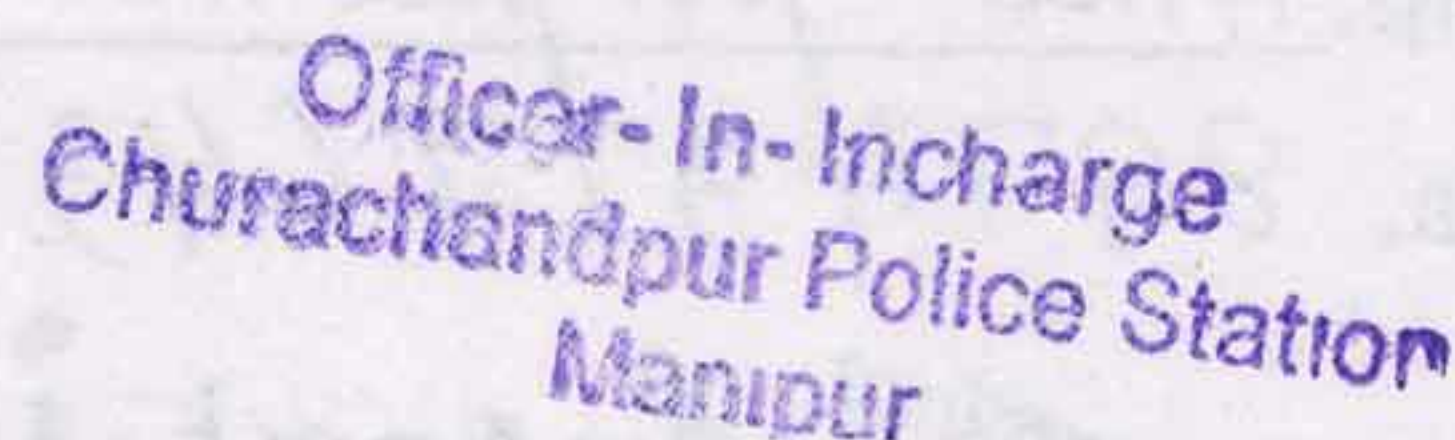 Officer- In- Incharge
Churachandpur Police Station
Manipur